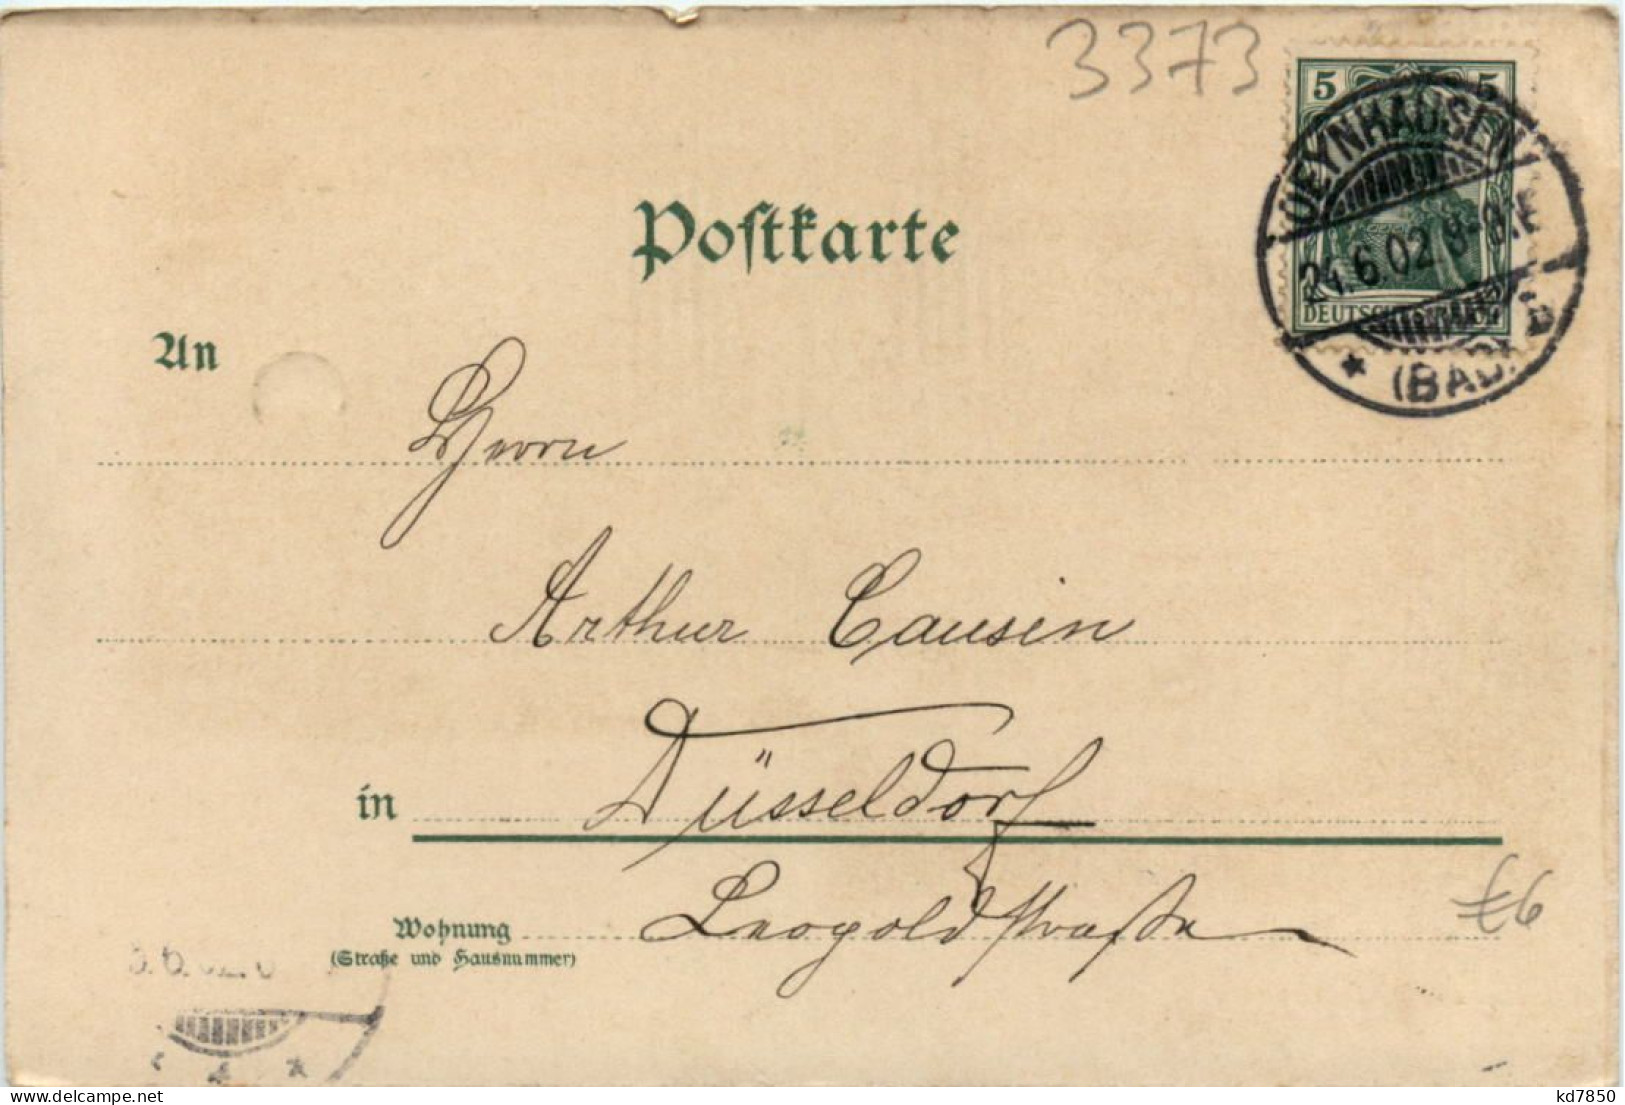 3373
5 5
OEYNHAUSEN
24.6.02.8-9.N
DEUTSCHES REICH
* (BAD) B
Postkarte
An
Herrn
Arthur Causin
in Düsseldorf
Leopoldstraße
Wohnung
(Straße und Hausnummer)
€6
delcampe.net
kd7850